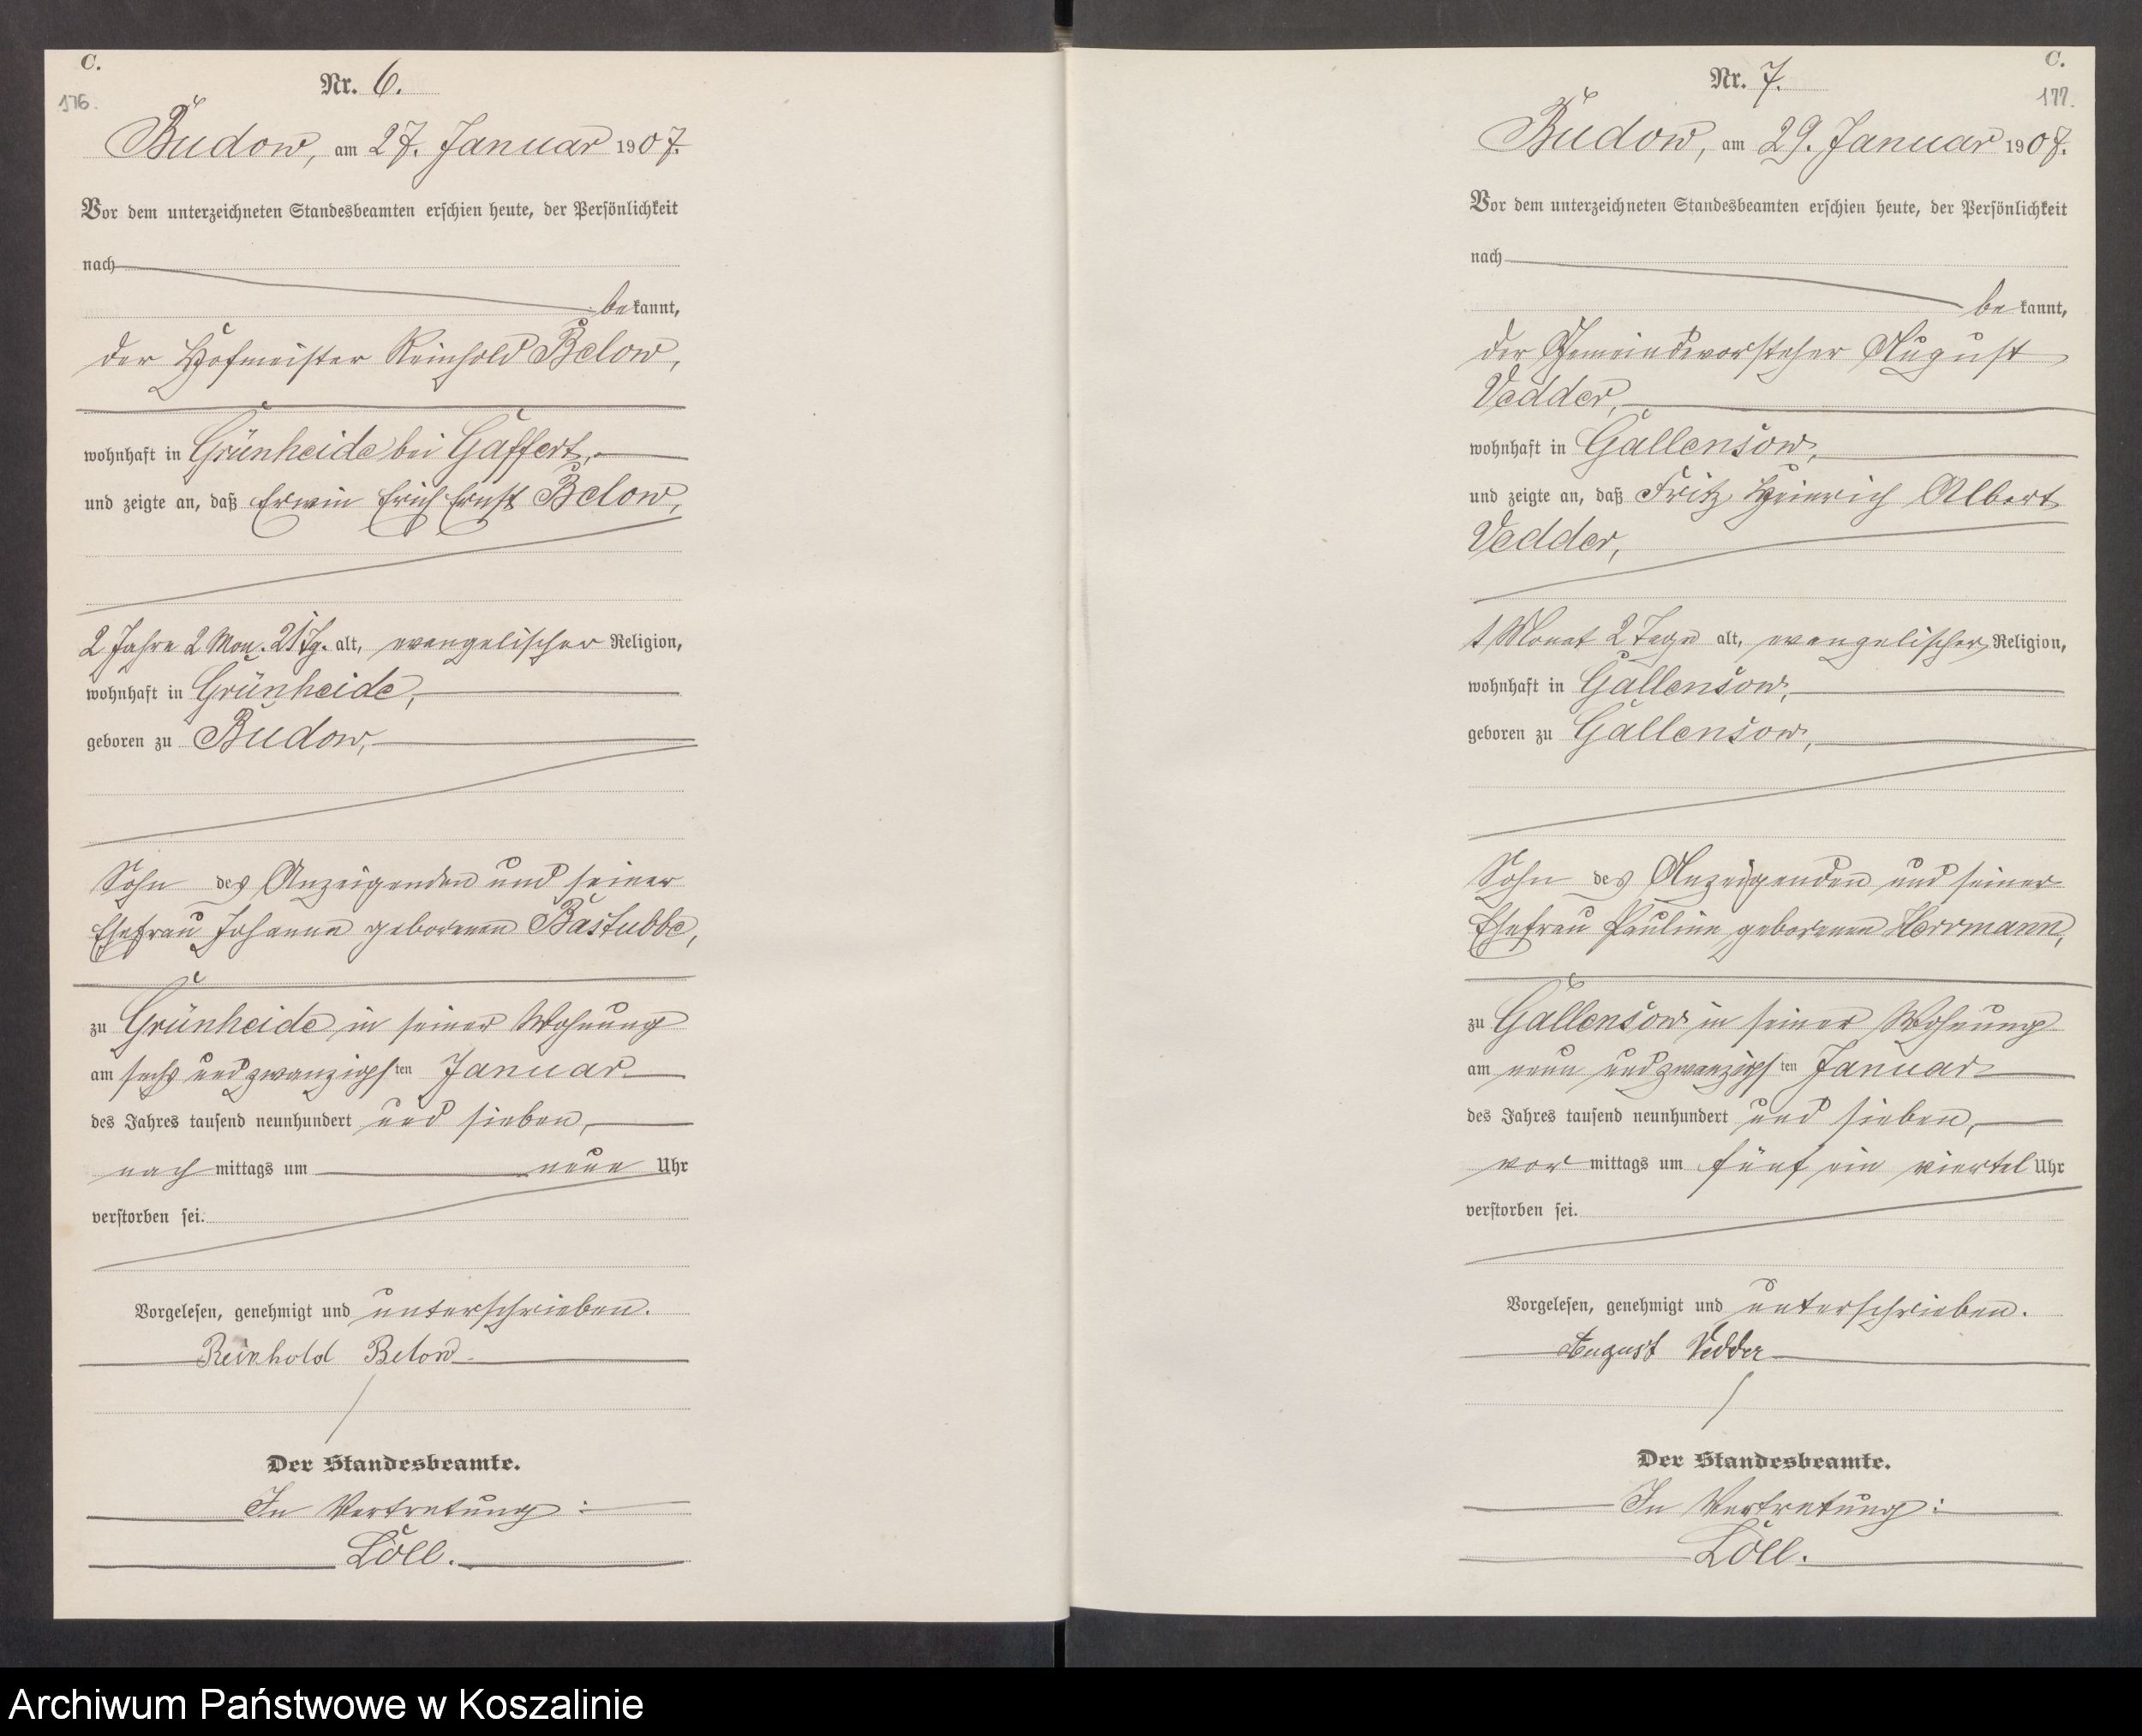 C.
176.
Nr. 6.
Budow, am 27. Januar 1907.
Vor dem unterzeichneten Standesbeamten erschien heute, der Persönlichkeit
nach
bekannt,
der Hofmeister Reinhold Below,
wohnhaft in Grünheide bei Gaffert,
und zeigte an, daß Erwin Erich Ernst Below,
2 Jahre 2 Mon. 21 Tg. alt, evangelischer Religion,
wohnhaft in Grünheide,
geboren zu Budow,
Sohn des Anzeigenden und seiner
Ehefrau Johanna geborenen Bastubbe,
zu Grünheide in seiner Wohnung
am sechs und zwanzigsten Januar
des Jahres tausend neunhundert und sieben,
nach mittags um neun Uhr
verstorben sei.
Vorgelesen, genehmigt und unterschrieben.
Reinhold Below
Der Standesbeamte.
In Vertretung:
Löll.
C.
177.
Nr. 7.
Budow, am 29. Januar 1907.
Vor dem unterzeichneten Standesbeamten erschien heute, der Persönlichkeit
nach
bekannt,
der Gemeindevorsteher August
Vedder,
wohnhaft in Gallensow,
und zeigte an, daß Fritz Heinrich Albert
Vedder,
1 Monat 2 Tage alt, evangelischer Religion,
wohnhaft in Gallensow,
geboren zu Gallensow,
Sohn des Anzeigenden und seiner
Ehefrau Pauline geborenen Herrmann,
zu Gallensow in seiner Wohnung
am neun und zwanzigsten Januar
des Jahres tausend neunhundert und sieben,
vor mittags um fünf ein viertel Uhr
verstorben sei.
Vorgelesen, genehmigt und unterschrieben.
August Vedder
Der Standesbeamte.
In Vertretung:
Löll.
Archiwum Państwowe w Koszalinie